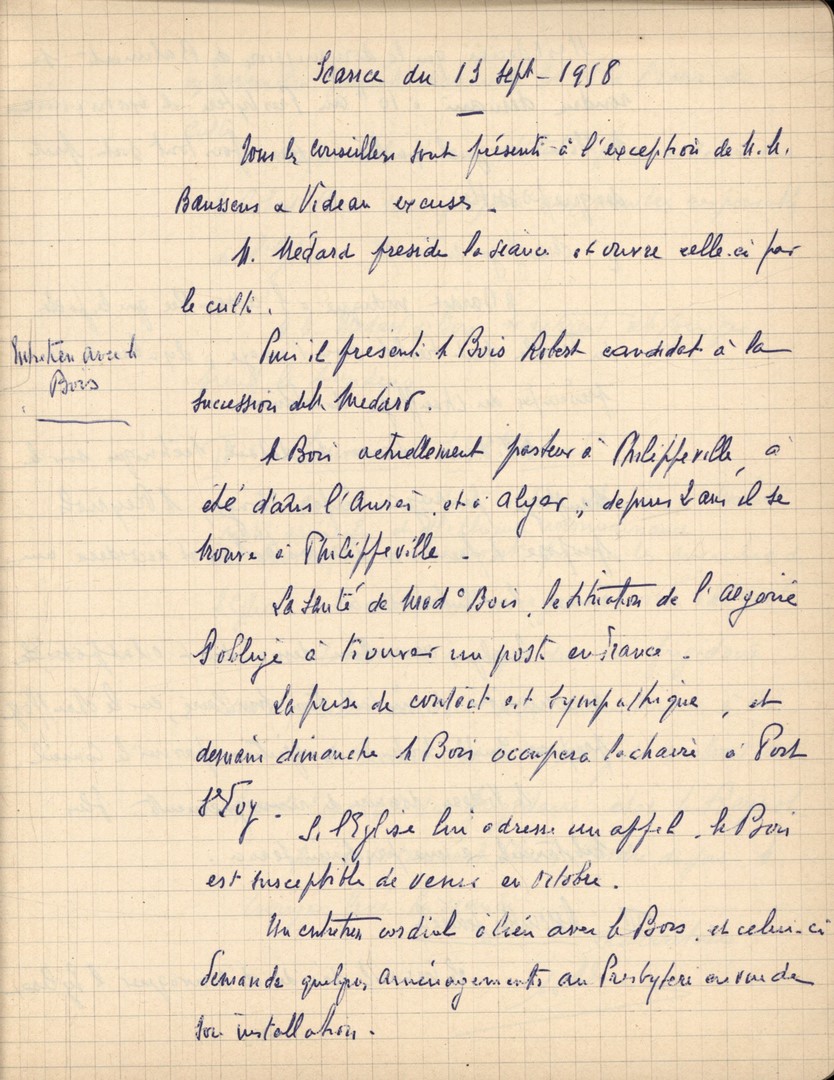 Séance du 13 sept - 1958
Tous les conseillers sont présents à l'exception de M. M.
Baussens & Videau excusés.
M. Médard préside la séance et ouvre celle-ci par
le culte.
Entretien avec M
Bois
Puis il présente M Bois Robert candidat à la
succession de M Médard.
M Bois actuellement pasteur à Philippeville, a
été dans l'Aurès, et à Alger, depuis 2 ans il se
trouve à Philippeville.
La santé de Made Bois, la situation de l'Algérie
l'oblige à trouver un poste en France.
La prise de contact est sympathique, et
demain dimanche M Bois occupera la chaire à Port
Ste Foy.
Si l'Eglise lui adresse un appel, M Bois
est susceptible de venir en octobre.
Un entretien cordial a lieu avec M Bois, et celui-ci
demande quelques aménagements au Presbytère en vue de
son installation.